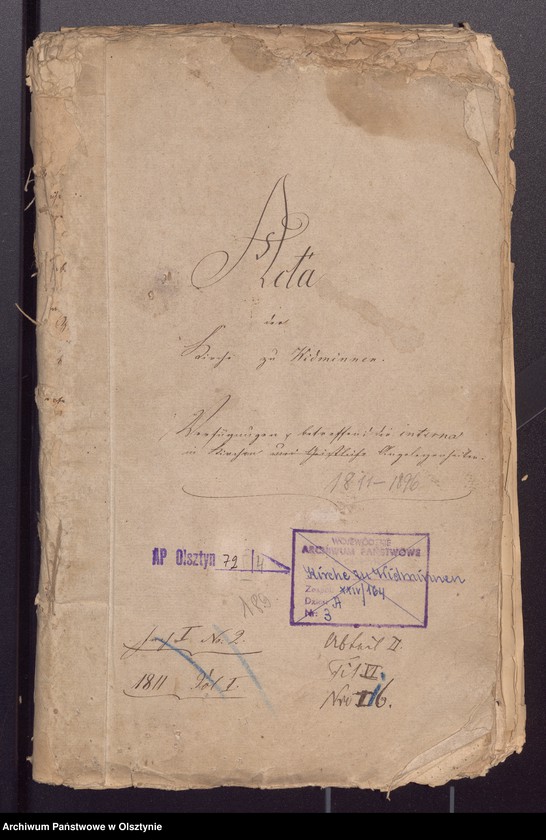 Acta
der
Kirche zu Widminnen.
Verfügungen, betreffend die interna
in Kirchen und Geistliche Angelegenheiten.
1811-1896.
AP Olsztyn 72/4
WOJEWÓDZKIE
ARCHIWUM PAŃSTWOWE
Kirche zu Widminnen
Zespół: XXIV/164
Dział: A
Nr: 3
189
No. 2.
1811 Vol I.
Abteil II.
Tit VI.
Nro 6.
Archiwum Państwowe w Olsztynie